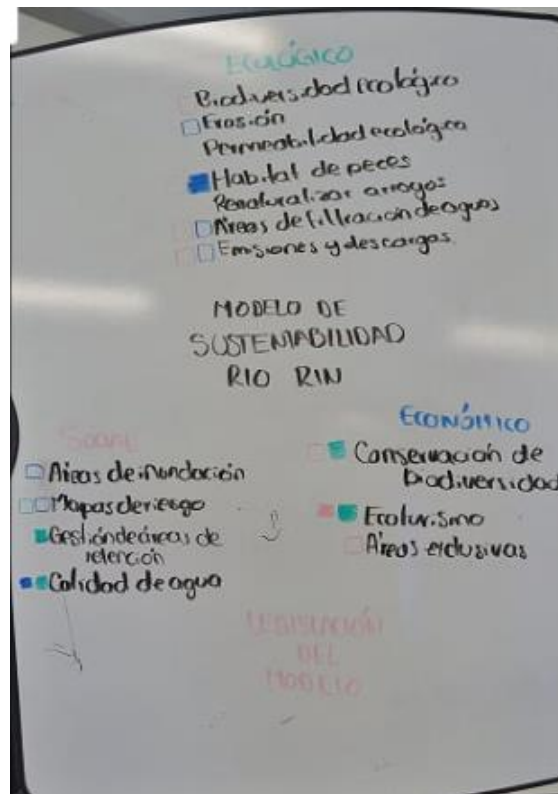 ECOLÓGICO
Biodiversidad ecológico
Erosión
Permeabilidad ecológica
Habitat de peces
Renaturalizar arroyos
Áreas de filtración de aguas
Emisiones y descargas
MODELO DE
SUSTENTABILIDAD
RIO RIN
SOCIAL
Áreas de inundación
Mapas de riesgo
Gestión de áreas de
retención
Calidad de agua
ECONÓMICO
Conservación de
biodiversidad
Ecoturismo
Áreas exclusivas
LEGISLACIÓN
DEL
MODELO